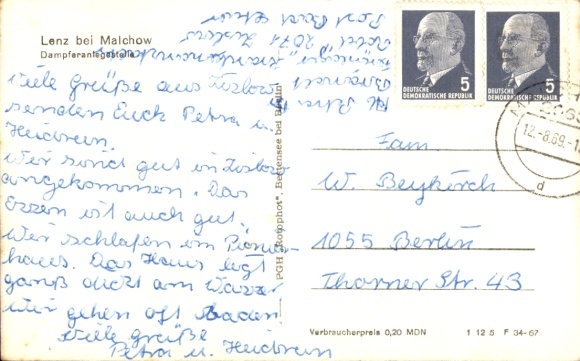 Lenz bei Malchow
Dampferanlegestelle
Viele Grüße aus Zislow
senden Euch Petra u.
Heidrein.
Wir sind gut in Zislow
angekommen. Das
Ezzen ist auch gut.
Wir schlafen im Pionier-
haus. Das Haus ligt
ganß dicht am Wazzer
Wir gehen oft baden!
Viele grüße
Petra u. Heidrein
2071 Zislow
Post
PGH „Rotophot", Bestensee bei Berlin
5
DEUTSCHE
DEMOKRATISCHE REPUBLIK
5
DEUTSCHE
DEMOKRATISCHE REPUBLIK
12.-8.69.-1
d
Fam
W. Beykirch
1055 Berlin
Thorner Str. 43
Verbraucherpreis 0,20 MDN
1 12 5 F 34-67